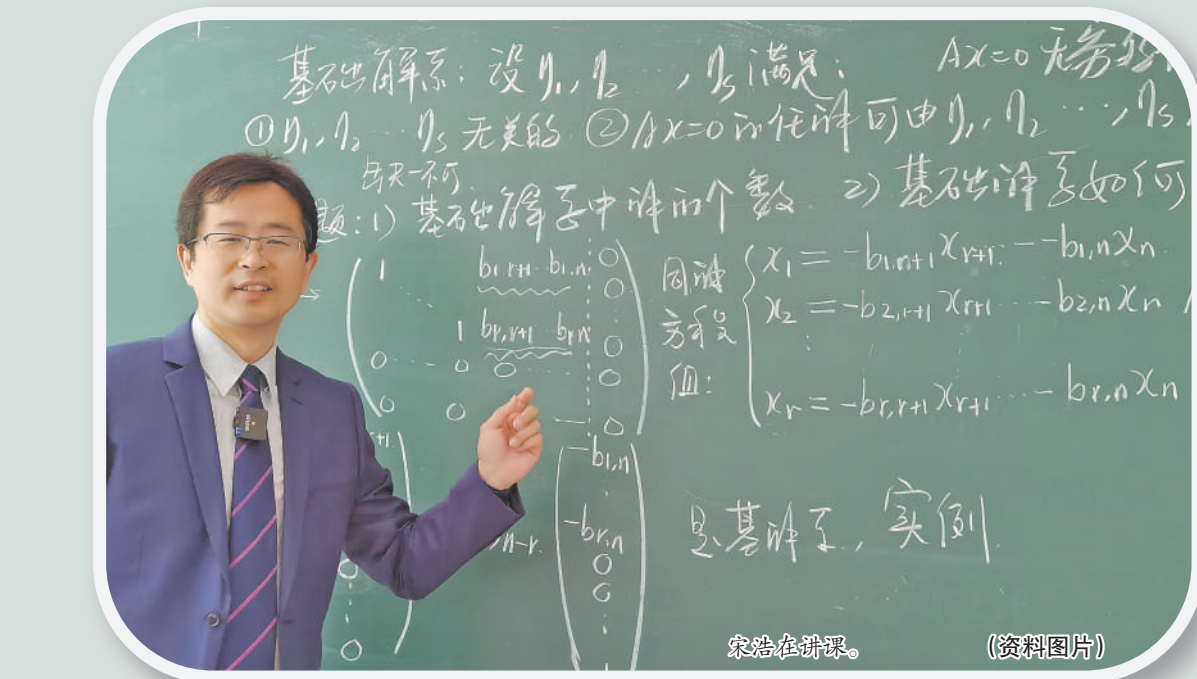 基础解系：设η₁,η₂ …,ηₛ满足： AX=0 无穷
①η₁,η₂ … ηₛ 无关的 ②AX=0的任解可由η₁,η₂ …,ηₛ
缺一不可
题：1) 基础解系中解的个数 2) 基础解系如何
1 b₁,r+1…b₁,n 0
0
1 br,r+1…br,n 0
0…0 0 … 0
0 0 — 0
同解方程组：
x₁ = -b₁,n+1 xr+1 … -b₁,n xn
x₂ = -b₂,r+1 xr+1 … -b₂,n xn
xr = -br,r+1 xr+1 … -br,n xn
-b₁,n
-br,n
0
0
n-r
0
0
是基解系，实例
宋浩在讲课。 （资料图片）